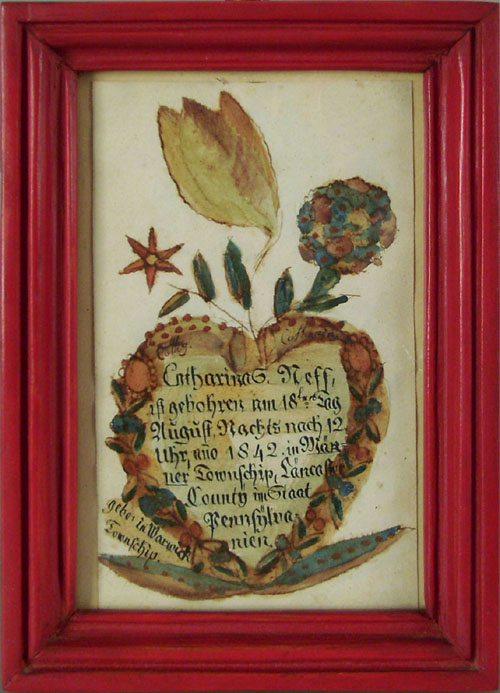 Catharina S. Neff,
ist gebohren am 18ten Tag
August, Nachts nach 12
Uhr, año 1842. in
Township, Läncaster
County im Staat
Pennsylva
nien.
gebo: in Warwick
Township.